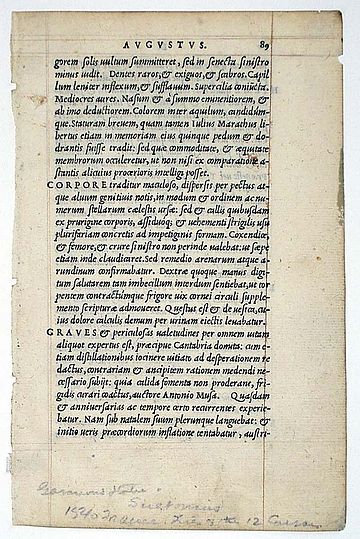 AVGVSTVS. 89
gorem solis uultum summitteret, sed in senecta sinistro
minus uidit. Dentes raros, & exiguos, & scabros. Capil
lum leniter inflexum, & sufflauum. Supercilia coniucta.
Mediocres aures. Nasum & a summo eminentiorem, &
ab imo deductiorem. Colorem inter aquilum, candidum-
que. Staturam breuem, quam tamen Iulius Marathus li=
bertus etiam in memoriam eius quinque pedum & do-
drantis fuisse tradit: sed quæ commoditate, & æquitate
membrorum occuleretur, ut non nisi ex comparatione a-
stantis alicuius procerioris intelligi posset.
CORPORE traditur maculoso, dispersis per pectus at-
que aluum genitiuis notis, in modum & ordinem ac nu-
merum stellarum cælestis ursæ: sed & callis quibusdam
ex prurigine corporis, assiduoq; & uehementi strigilis usu
plurifariam concretis ad impetiginis formam. Coxendice,
& femore, & crure sinistro non perinde ualebat: ut sæpe
etiam inde claudicaret. Sed remedio arenarum atque a-
rundinum confirmabatur. Dextræ quoque manus digi-
tum salutarem tam imbecillum interdum sentiebat, ut tor
pentem contractumque frigore uix cornei circuli supple-
mento scripturæ admoueret. Questus est & de uesica, cu-
ius dolore calculis demum per urinam eiectis leuabatur.
GRAVES & periculosas ualetudines per omnem uitam
aliquot expertus est, præcipue Cantabria domita: cum e-
tiam distillationibus iocinere uitiato ad desperationem re
dactus, contrariam & ancipitem rationem medendi ne-
cessario subijt: quia calida fomenta non proderant, fri-
gidis curari coactus, auctore Antonio Musa. Quasdam
& anniuersarias ac tempore certo recurrentes experie-
batur. Nam sub natalem suum plerunque languebat: &
initio ueris præcordiorum inflatione tentabatur, austri-
Suetonius
12